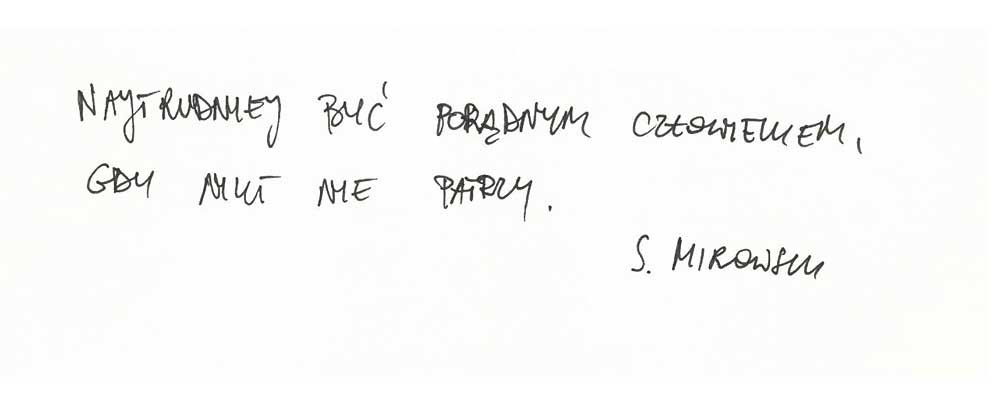 NAJTRUDNIEJ BYĆ PORĄDNYM CZŁOWIEKIEM,
GDY NIKT NIE PATRZY.
S. MIROWSKI